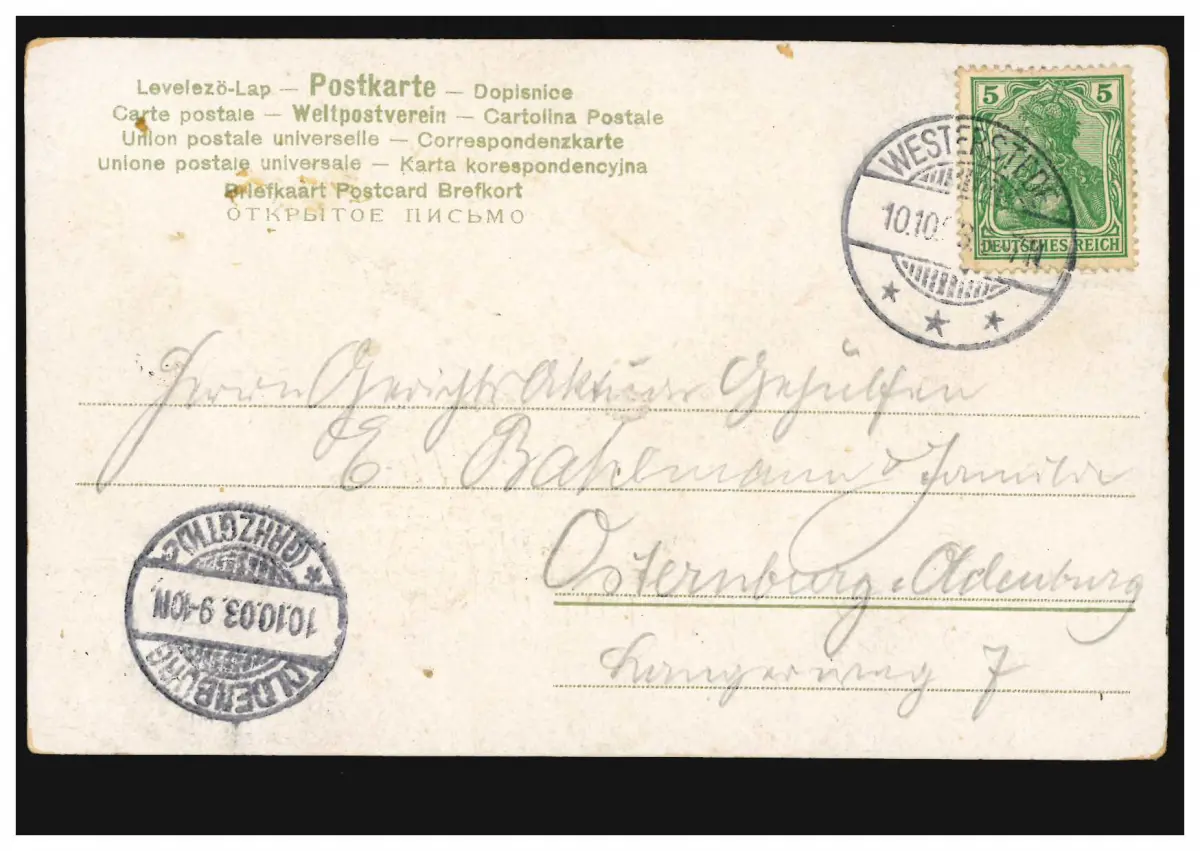 Levelezö-Lap — Postkarte — Dopisnice
Carte postale — Weltpostverein — Cartolina Postale
Union postale universelle — Correspondenzkarte
Unione postale universale — Karta korespondencyjna
Briefkaart Postcard Brefkort
ОТКРЫТОЕ ПИСЬМО
5 5
DEUTSCHES REICH
WESTERSTEDE
10.10. N
Herrn Gerichts Aktuar Gehülfen
E. Familie
Osternburg Oldenburg
Langerweg 7
OLDENBURG
10.10.03. 9-10N.
(GRHZGTH)